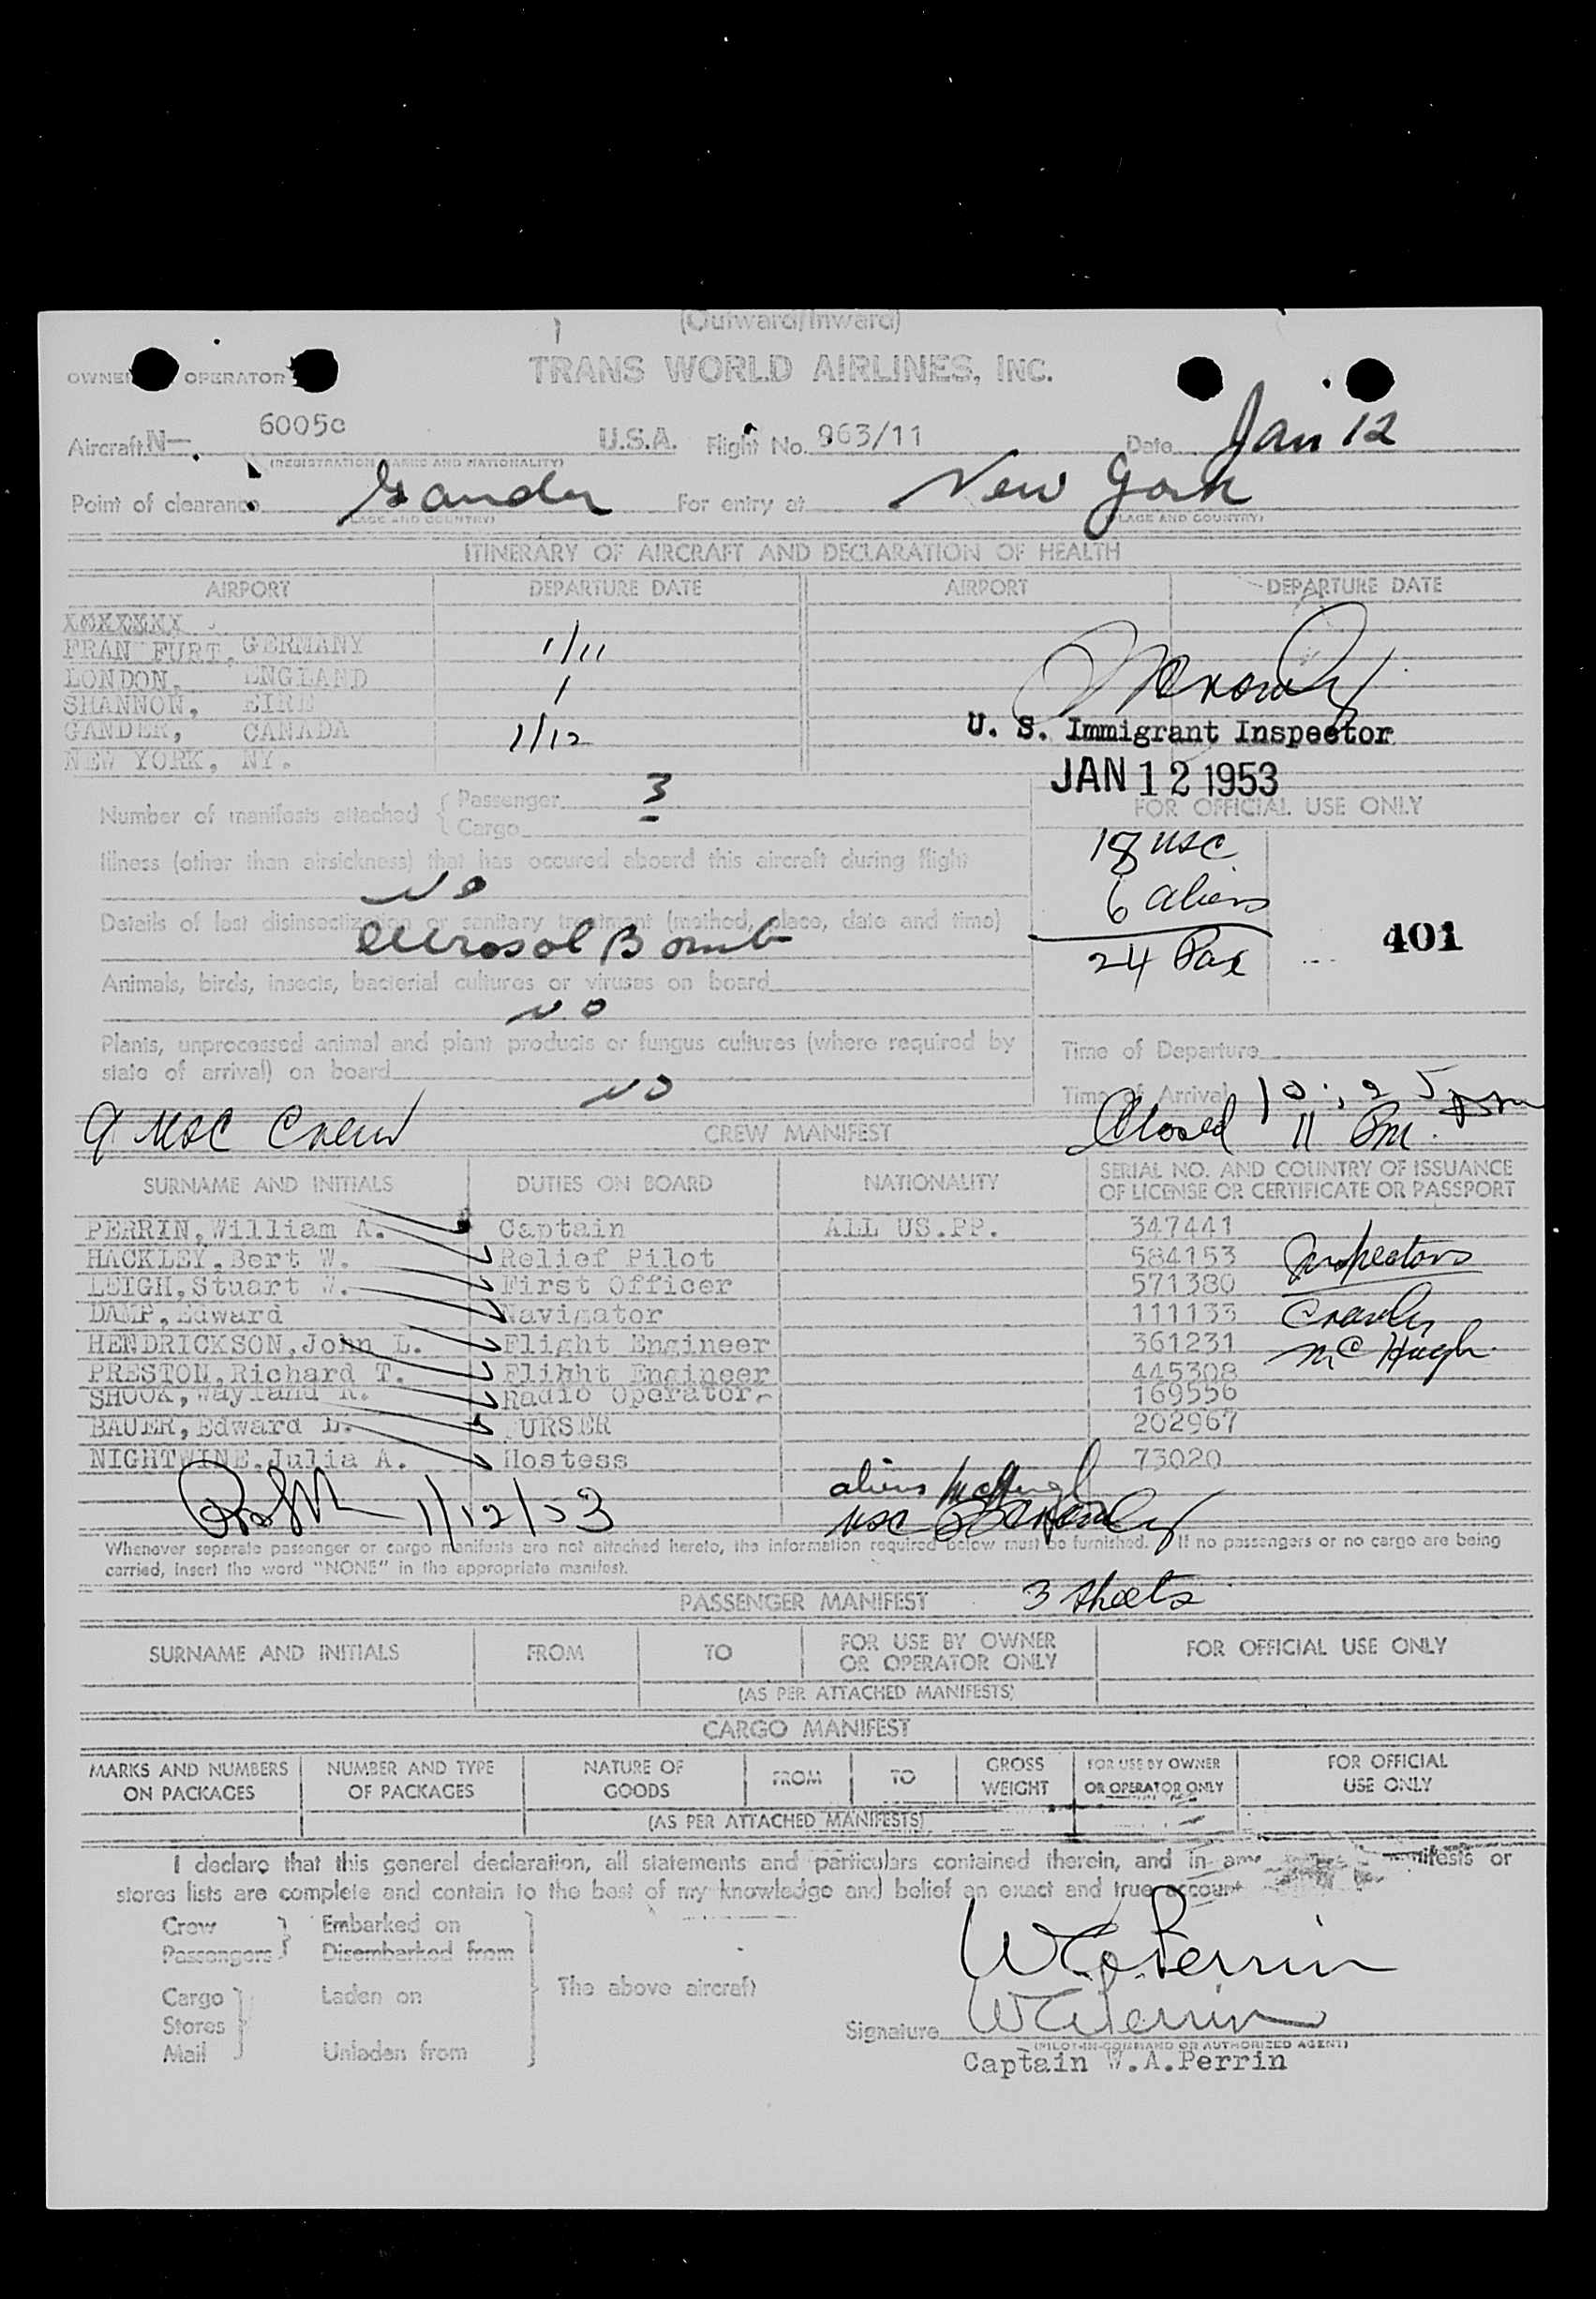 (Outward/Inward)
OWNER OPERATOR TRANS WORLD AIRLINES, INC.
Aircraft N— 6005c U.S.A. Flight No. 963/11 Date Jan 12
(REGISTRATION MARKS AND NATIONALITY)
Point of clearance Gander For entry at New York
(PLACE AND COUNTRY) (PLACE AND COUNTRY)
ITINERARY OF AIRCRAFT AND DECLARATION OF HEALTH
AIRPORT DEPARTURE DATE AIRPORT DEPARTURE DATE
XXXXXXX
FRAN FURT, GERMANY 1/11
LONDON, ENGLAND /
SHANNON, EIRE
GANDER, CANADA 1/12
NEW YORK, NY.
U. S. Immigrant Inspector
JAN 12 1953
Number of manifests attached { Passenger 3
Cargo
FOR OFFICIAL USE ONLY
18 USC
6 aliens
24 Pax
401
Illness (other than airsickness) that has occured aboard this aircraft during flight
NO
Details of last disinsectization or sanitary treatment (method, place, date and time)
Aerosol Bomb
Animals, birds, insects, bacterial cultures or viruses on board
NO
Plants, unprocessed animal and plant products or fungus cultures (where required by
state of arrival) on board
NO
Time of Departure
Time of Arrival 10:25 pm
Closed 11 Pm.
9 USC Crew
CREW MANIFEST
SURNAME AND INITIALS DUTIES ON BOARD NATIONALITY SERIAL NO. AND COUNTRY OF ISSUANCE
OF LICENSE OR CERTIFICATE OR PASSPORT
PERRIN, William A. Captain ALL US.PP. 347441
HACKLEY, Bert W. Relief Pilot 584153 Inspectors
LEIGH, Stuart W. First Officer 571380
DAMP, Edward Navigator 111133 Crowley
HENDRICKSON, John L. Flight Engineer 361231 McHugh
PRESTON, Richard T. Flight Engineer 445308
SHOOK, Wayland R. Radio Operator 169556
BAUER, Edward L. URSER 202967
NIGHTWINE, Julia A. Hostess 73020
aliens McHugh
1/12/53 USC
Whenever separate passenger or cargo manifests are not attached hereto, the information required below must be furnished. If no passengers or no cargo are being
carried, insert the word "NONE" in the appropriate manifest.
PASSENGER MANIFEST 3 sheets
SURNAME AND INITIALS FROM TO FOR USE BY OWNER
OR OPERATOR ONLY FOR OFFICIAL USE ONLY
(AS PER ATTACHED MANIFESTS)
CARGO MANIFEST
MARKS AND NUMBERS
ON PACKAGES NUMBER AND TYPE
OF PACKAGES NATURE OF
GOODS FROM TO GROSS
WEIGHT FOR USE BY OWNER
OR OPERATOR ONLY FOR OFFICIAL
USE ONLY
(AS PER ATTACHED MANIFESTS)
I declare that this general declaration, all statements and particulars contained therein, and in any manifests or
stores lists are complete and contain to the best of my knowledge and belief an exact and true account
Crew } Embarked on
Passengers } Disembarked from
Cargo } Laden on The above aircraft
Stores
Mail Unladen from
WA Perrin
Signature WA Perrin
(PILOT-IN-COMMAND OR AUTHORIZED AGENT)
Captain W.A.Perrin